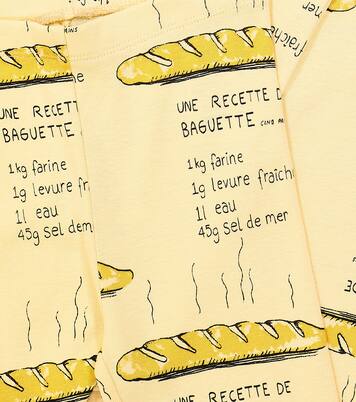 MINS
fraîche
UNE RECETT
BAGUETTE
1kg farine
1g levure fr
1l eau
45g sel dem
UNE RECETTE D
BAGUETTE CINQ
1kg farine
1g levure fraîch
1l eau
45g sel de mer
UNE RECETTE DE